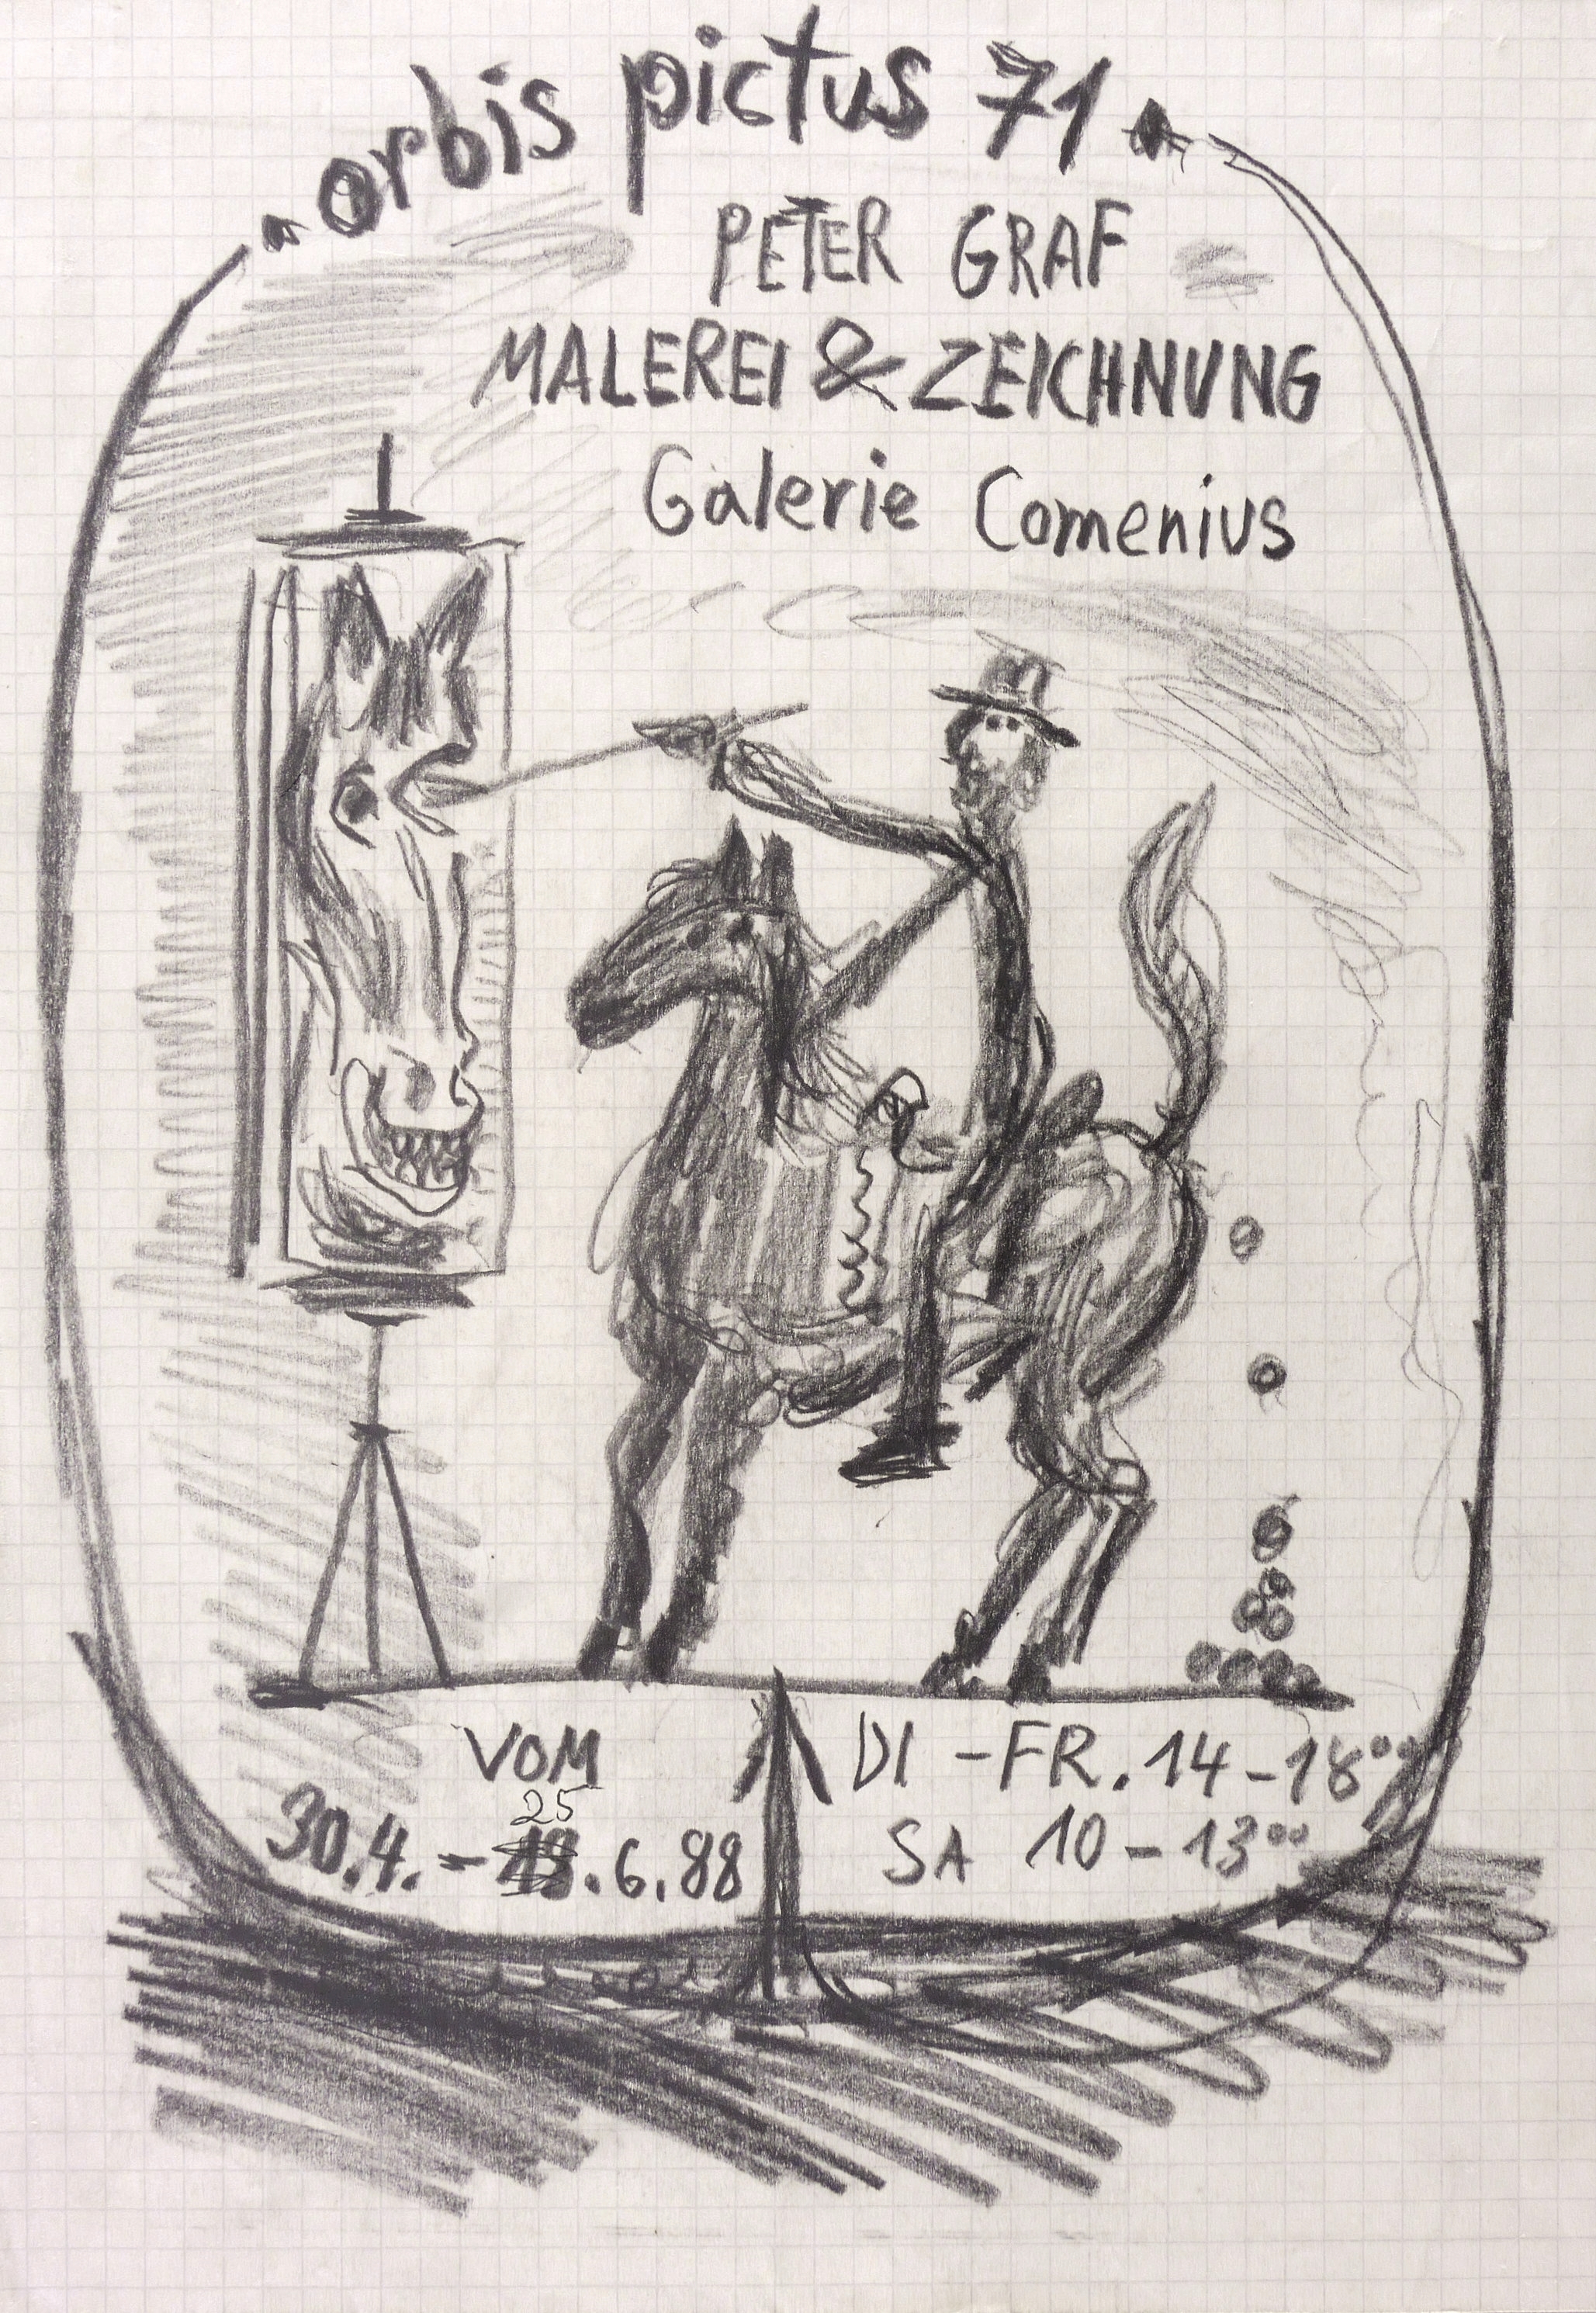 „orbis pictus 71“
PETER GRAF
MALEREI & ZEICHNUNG
Galerie Comenius
VOM
25
30.4. - .6.88
DI - FR. 14 - 18⁰⁰
SA 10 - 13⁰⁰